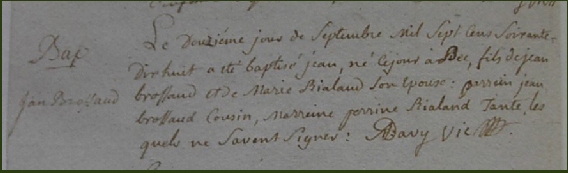 Bap
jan Brossaud
Le Douziéme jour de Septembre Mil Sept Cens Soixante-
Dixhuit a eté baptisé jean, né cejour à Bec, fils dejean
brossaud et de Marie Bialaud Son epouse: parrein jean
brossaud Cousin, Marreine perrine Bialand Tante, les
quels ne Savent Signer: Davy Vic